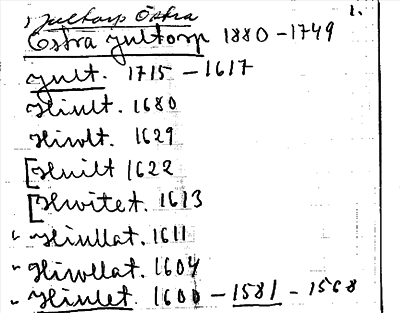 Jultorp Östra 1.
Östra Jultorp 1880 - 1749
Jult. 1715 - 1617
Hiult. 1680
Hiwlt. 1629
[Huilt 1622
[Hwitet. 1613
" Hiullat. 1611
" Hiwllat. 1604
" Hiulet. 1600 - 1581 - 1568